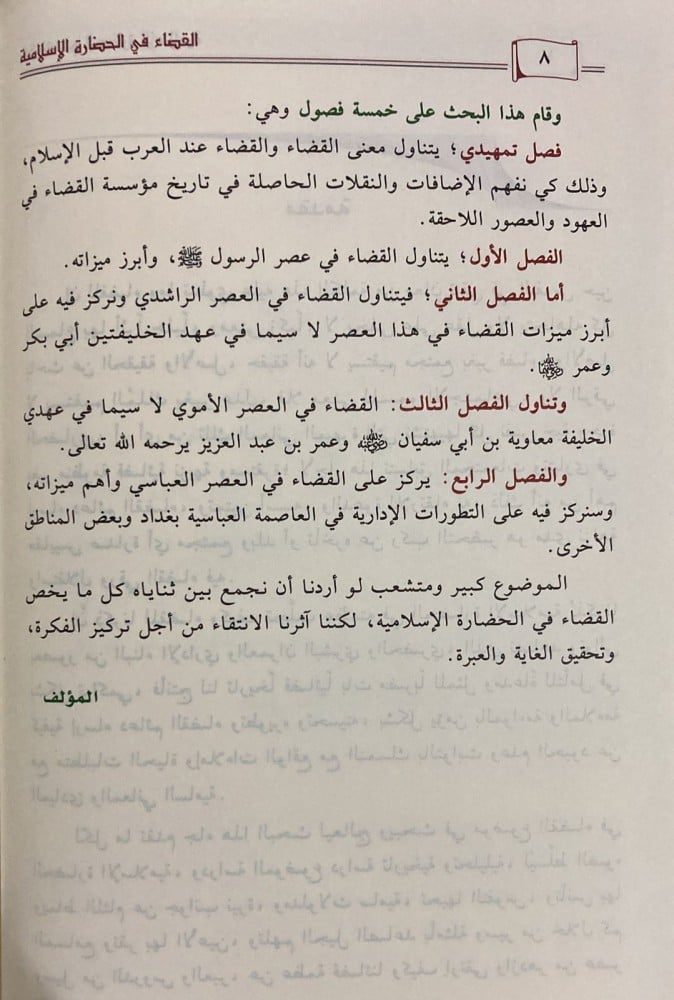 القضاء في الحضارة الإسلامية
٨
وقام هذا البحث على خمسة فصول وهي:
فصل تمهيدي؛ يتناول معنى القضاء والقضاء عند العرب قبل الإسلام،
وذلك كي نفهم الإضافات والنقلات الحاصلة في تاريخ مؤسسة القضاء في
العهود والعصور اللاحقة.
الفصل الأول؛ يتناول القضاء في عصر الرسول ﷺ، وأبرز ميزاته.
أما الفصل الثاني؛ فيتناول القضاء في العصر الراشدي ونركز فيه على
أبرز ميزات القضاء في هذا العصر لا سيما في عهد الخليفتين أبي بكر
وعمر .
وتناول الفصل الثالث: القضاء في العصر الأموي لا سيما في عهدي
الخليفة معاوية بن أبي سفيان وعمر بن عبد العزيز يرحمه الله تعالى.
والفصل الرابع: يركز على القضاء في العصر العباسي وأهم ميزاته،
وسنركز فيه على التطورات الإدارية في العاصمة العباسية بغداد وبعض المناطق
الأخرى.
الموضوع كبير ومتشعب لو أردنا أن نجمع بين ثناياه كل ما يخص
القضاء في الحضارة الإسلامية، لكننا آثرنا الانتقاء من أجل تركيز الفكرة،
وتحقيق الغاية والعبرة.
المؤلف